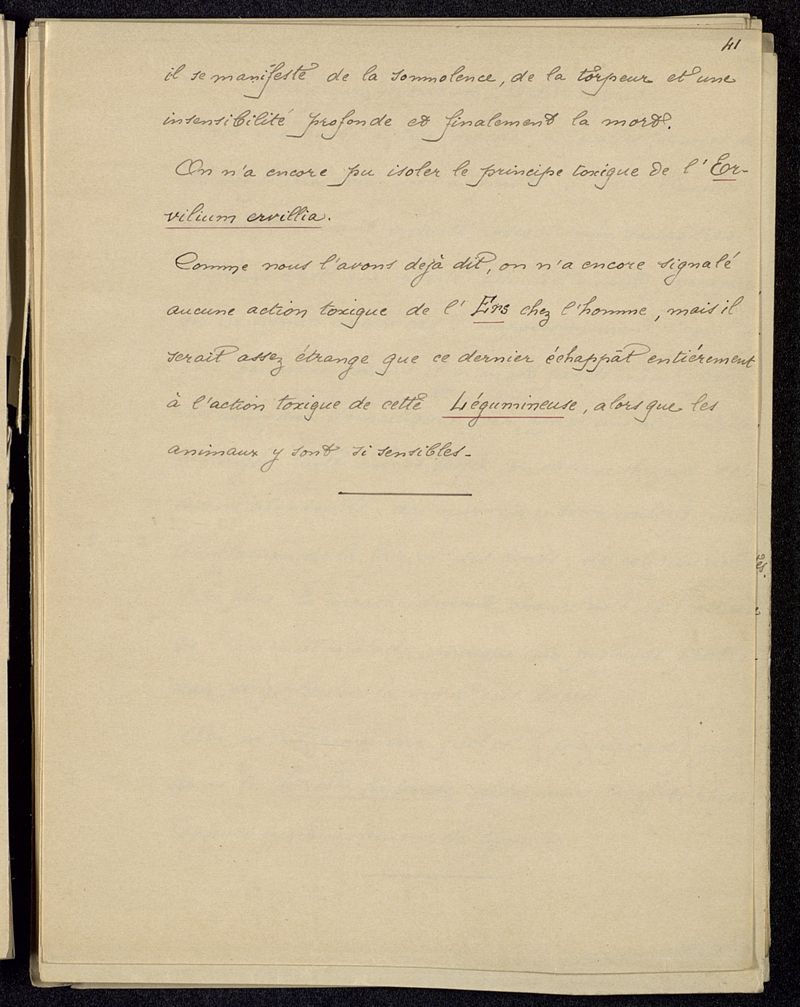 41
il se manifeste de la somnolence, de la torpeur et une
insensibilité profonde et finalement la mort.
On n'a encore pu isoler le principe toxique de l'Er-
vilium ervillia.
Comme nous l'avons dejà dit, on n'a encore signalé
aucune action toxique de l'Ers chez l'homme, mais il
serait assez étrange que ce dernier échappât entiérement
à l'action toxique de cette Légumineuse, alors que les
animaux y sont si sensibles.